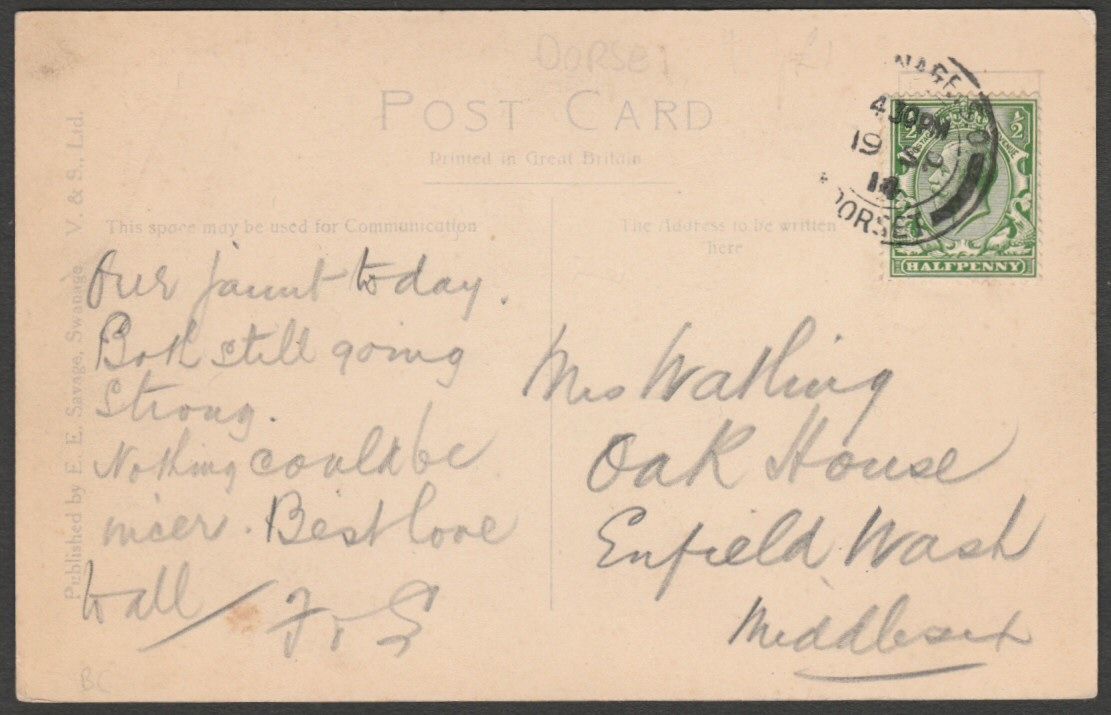 DORSET
£1
POST CARD
Printed in Great Britain
This space may be used for Communication
The Address to be written
here
4 30 PM
19
14
DORSET
½
½
HALFPENNY
Our jaunt today.
Both still going
Strong.
Nothing could be
nicer. Best love
to all
Mrs Watling
Oak House
Enfield Wash
Middlesex
Published by E. E. Savage, Swanage. V. & S., Ltd.
BC